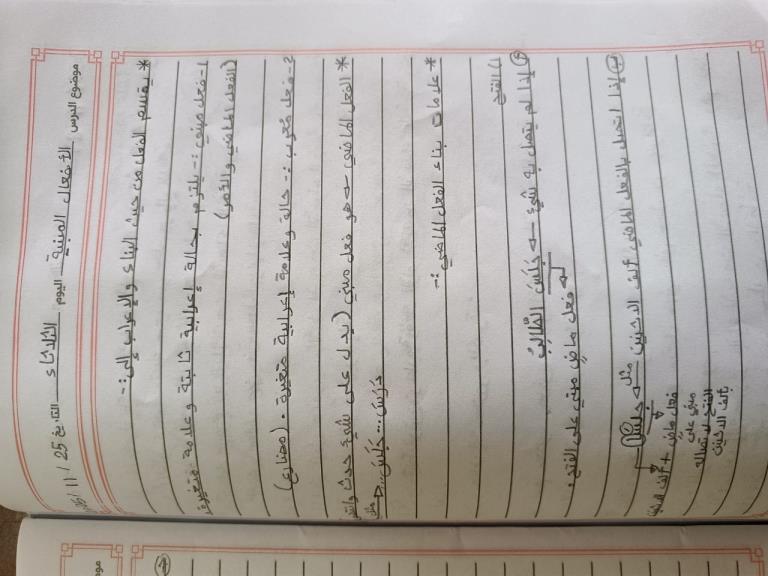 موضوع الدرس الأفعال المبنية اليوم الثلاثاء التاريخ 25 / 11 /
* يقسم الفعل من حيث البناء والإعراب إلى :-
1- فعل مبني :- يلتزم بحالة إعرابية ثابتة وعلامة متغيرة
(الفعل الماضي والأمر)
2- فعل معرب :- حالة وعلامة إعرابية متغيرة . (مضارع)
* الفعل الماضي ← هو فعل مبني (يدل على شيء حدث وانتهى)
مثل دَرَسَ .. جَلَسَ ..
* علامات بناء الفعل الماضي :-
1) الفتح
أ) إذا لم يتصل به شيء ← جَلَسَ الطالبُ
فعل ماضٍ مبني على الفتح .
ب) إذا اتصل بالفعل الماضي ألف الاثنين مثل ← جلسا
فعل ماضٍ + ألف الاثنين
مبني على
الفتح لاتصاله
بألف الاثنين